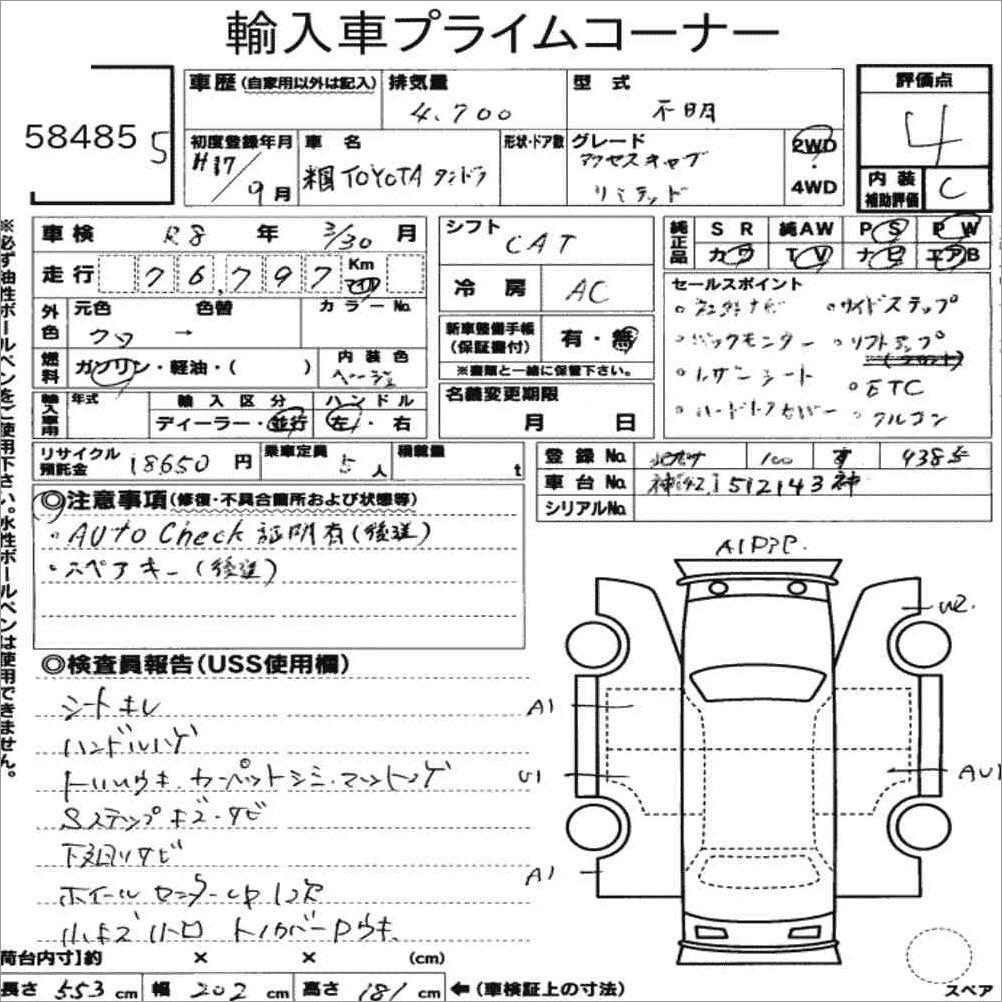 輸入車プライムコーナー
58485 5
車歴(自家用以外は記入)
排気量
4.700
型式
不明
評価点
4
初度登録年月
H17/9月
車名
米国TOYOTA タンドラ
形状・ドア数
グレード
アクセスキャブ
リミテッド
2WD
4WD
内装
補助評価
C
車検 R8 年 3/30 月
走行 76,797 Km
マイル
シフト
CAT
冷房 AC
純正品
SR 純AW PS PW
カワ TV ナビ エアB
外色
元色 色替 カラーNo.
クロ →
燃料
ガソリン・軽油・( )
内装色
ベージュ
新車整備手帳
(保証書付)
有・無
※書類と一緒に保管下さい。
セールスポイント
。社外ナビ 。サイドステップ
。バックモニター 。リフトアップ
。レザーシート 。ETC
。ハードトノカバー 。クルコン
輸入車用
年式
輸入区分
ディーラー・並行
ハンドル
左・右
名義変更期限
月 日
リサイクル
預託金
18650円
乗車定員
5人
積載量
t
登録No. 100 す 9385
車台No. 神[42]512143神
シリアルNo.
◎注意事項(修復・不具合箇所および状態等)
。AUto Check 証明有(後送)
・スペアキー(後送)
◎検査員報告(USS使用欄)
シートキレ
ハンドルハゲ
トリムウキ.カーペットシミ.マットコゲ
Sステップキズ・サビ
下回りサビ
ホイールセンターcap 1コ欠
小キズ小ヘコ トノカバーPウキ.
A1Pヒ.
U2.
A1
U1
AU1
A1
荷台内寸】約 × × (cm)
長さ 553 cm 幅 202 cm 高さ 181 cm ←(車検証上の寸法)
スペア
※必ず油性ボールペンをご使用下さい。水性ボールペンは使用できません。